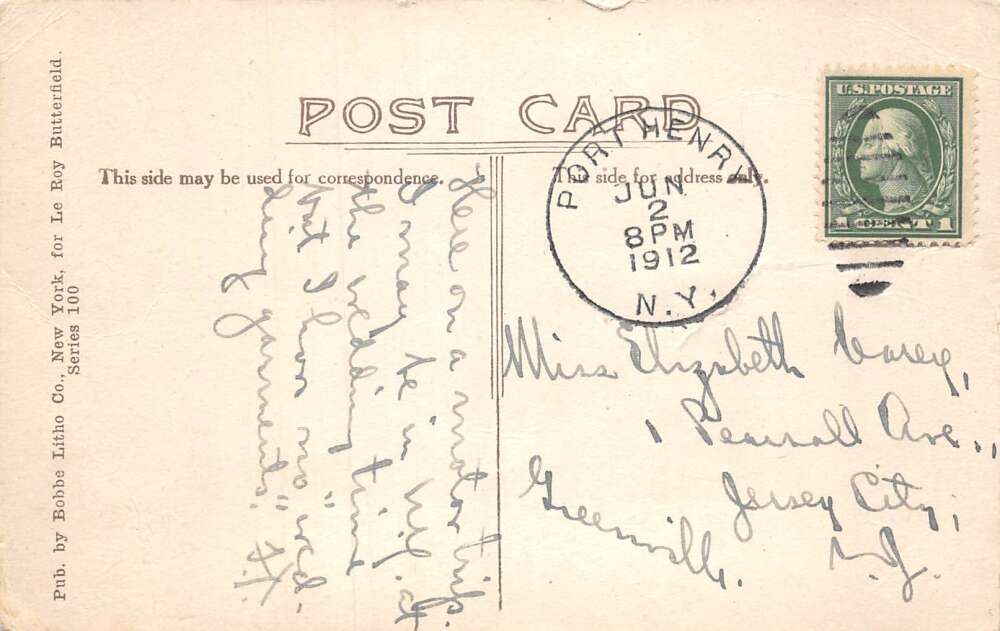 POST CARD
This side may be used for correspondence.
This side for address only.
Pub. by Bobbe Litho Co., New York, for Le Roy Butterfield.
Series 100
U.S. POSTAGE
1 CENT 1
PORT HENRY
JUN
2
8 PM
1912
N.Y.
Here on a motor trip.
I may be in N.Y. at
the wedding time
but I have no "wed-
ding garments". H.
Miss Elizabeth Carey,
1 Pearsall Ave.,
Jersey City,
Greenville. N.J.